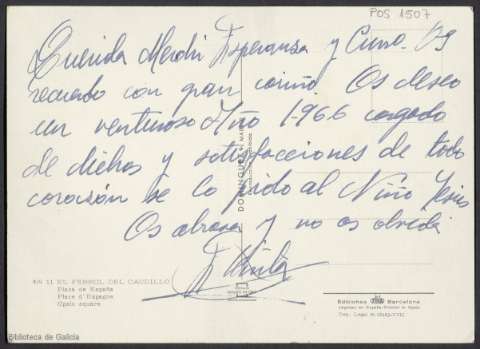 POS 1507
Querida Merchi Esperanza y Curro. Os
recuerdo con gran cariño. Os deseo
un venturoso Año 1.966 cargado
de dichas y satisfacciones de todo
corazón se lo pido al Niño Jesús
Os abraza y no os olvida
DOMINGUEZ
Nº 11 EL FERROL DEL CAUDILLO
Plaza de España
Place d'Espagne
Spain square
Ediciones Barcelona
Biblioteca de Galicia